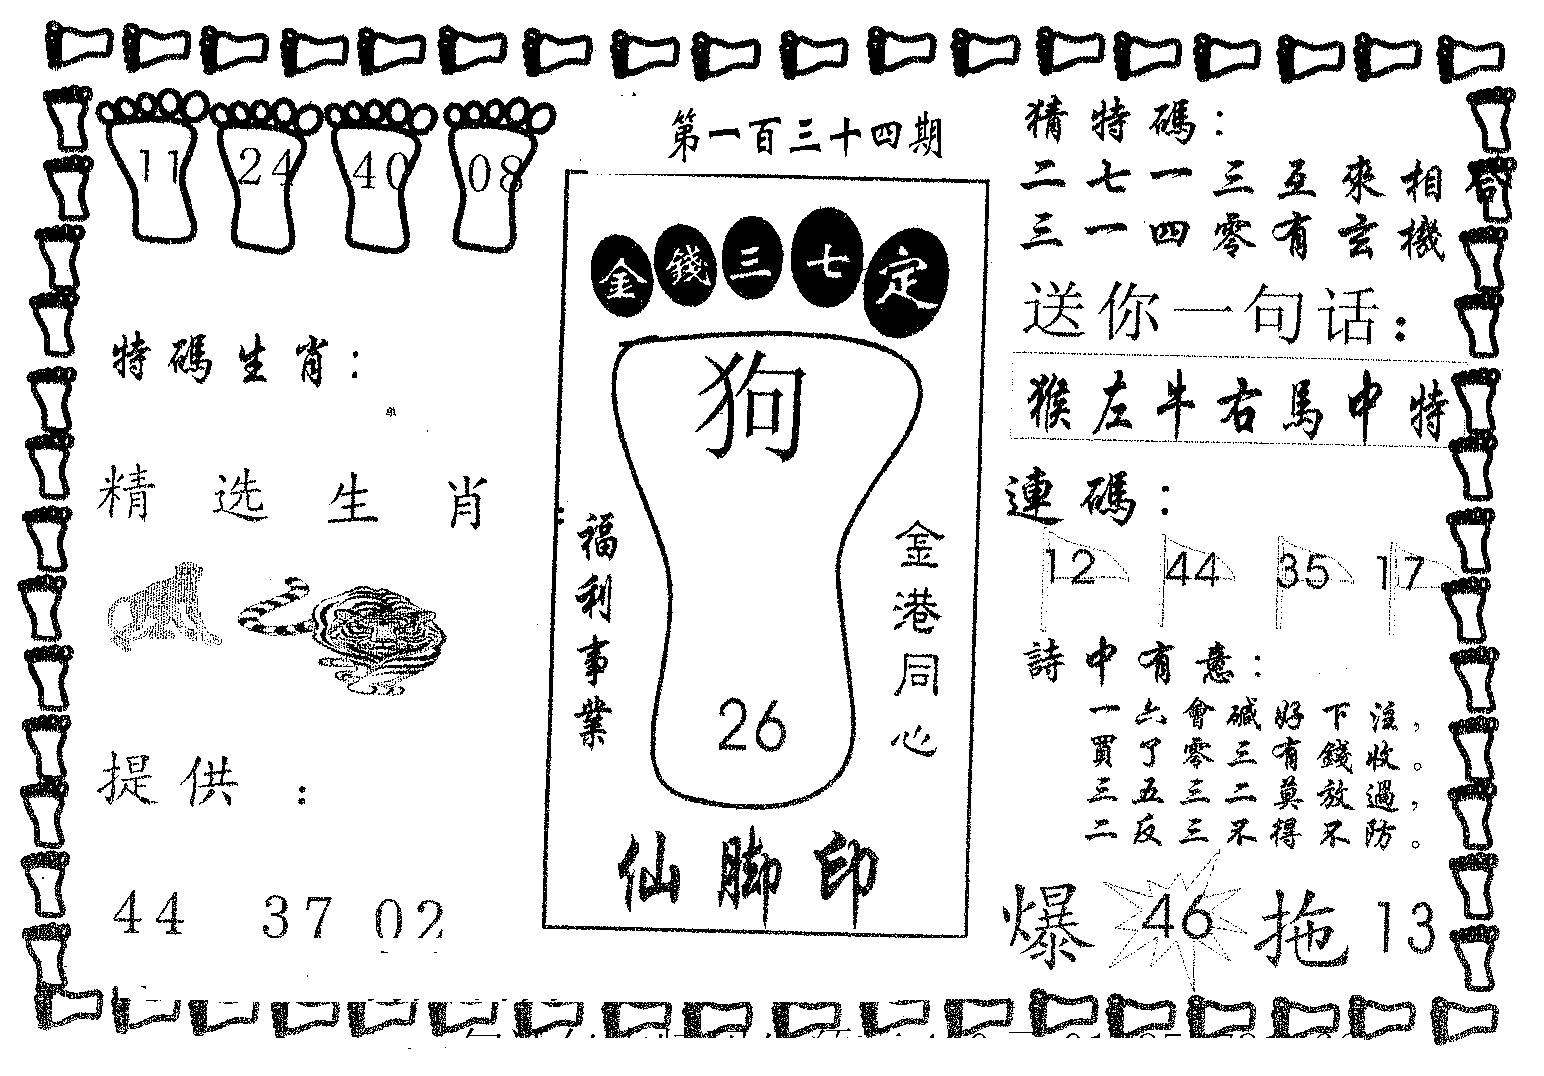 第一百三十四期
11 24 40 08
特碼生肖：
单
精选生肖
提供：
44 37 02
金錢三七定
狗
福利事業
金港同心
26
仙脚印
猜特碼：
二七一三互來相
三一四零有玄機
送你一句话：
猴左牛右馬中特
連碼：
12 44 35 17
詩中有意：
一六會碱好下注，
買了零三有錢收。
三五三二莫放過，
二反三不得不防。
爆 46 拖 13